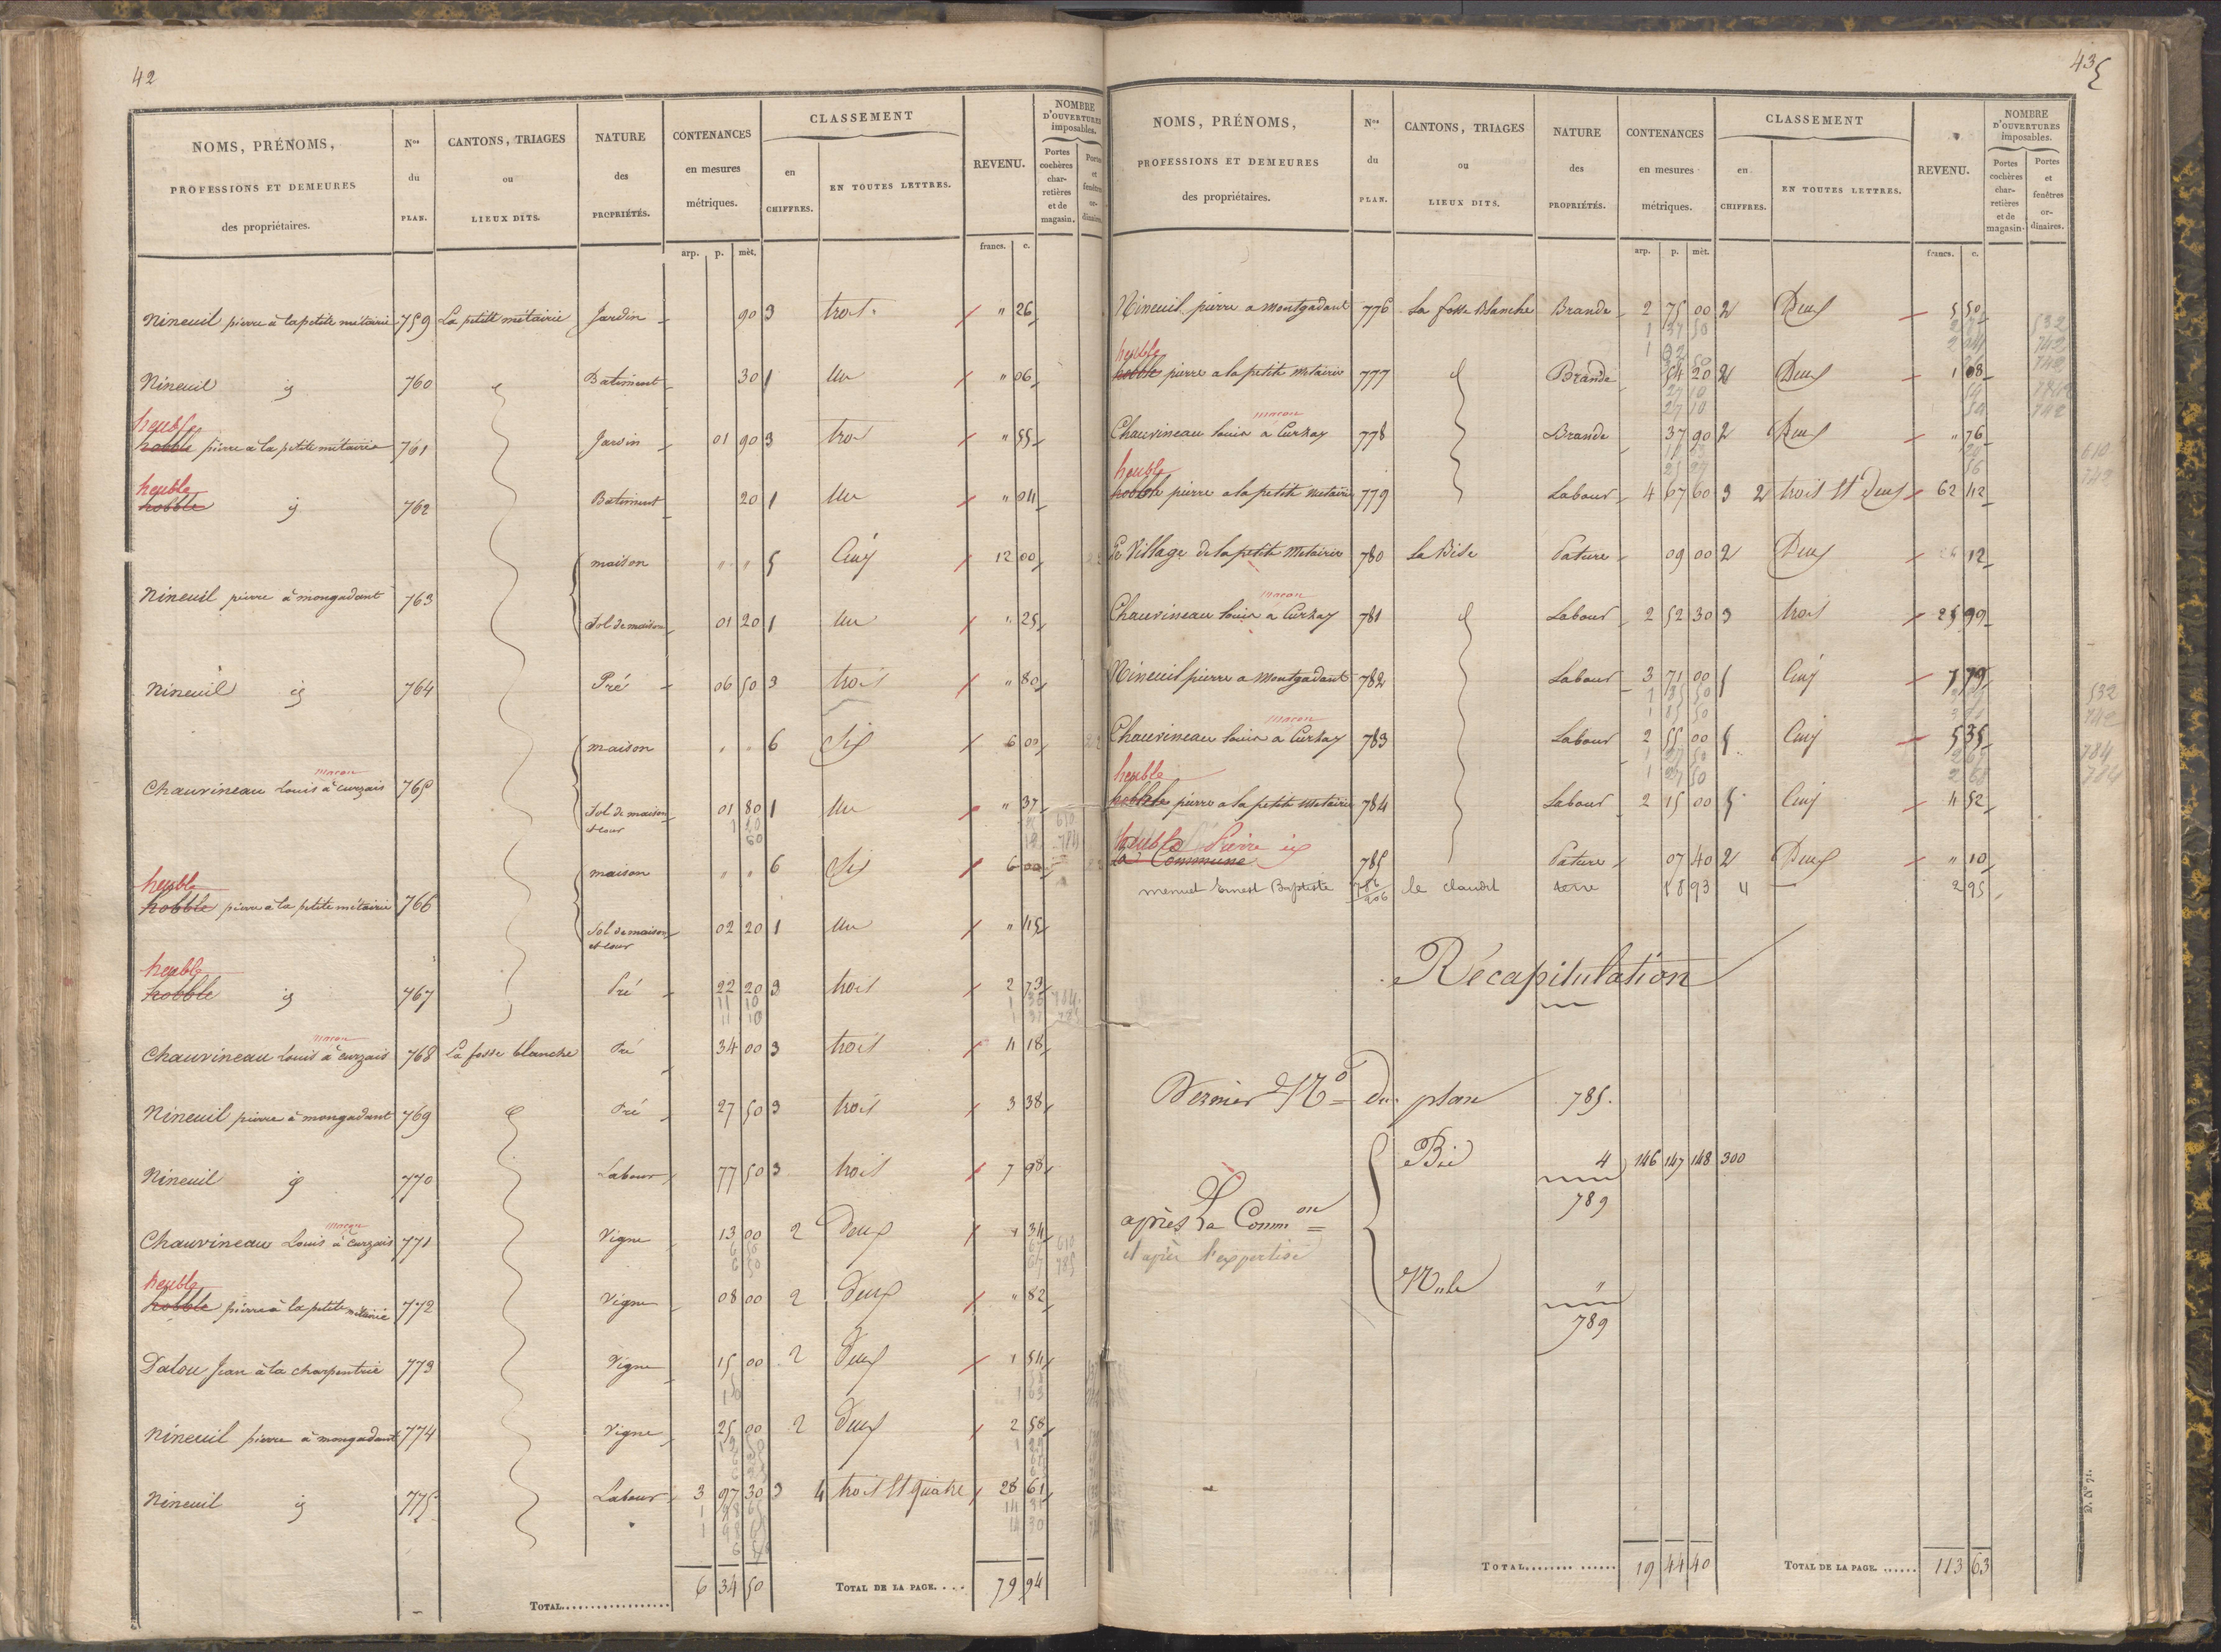 42
NOMS, PRÉNOMS,
PROFESSIONS ET DEMEURES
des propriétaires.
Nos
du
PLAN.
CANTONS, TRIAGES
ou
LIEUX DITS.
NATURE
des
PROPRIÉTÉS.
CONTENANCES
en mesures
métriques.
arp. p. mèt.
CLASSEMENT
en
CHIFFRES.
EN TOUTES LETTRES.
REVENU.
francs. c.
NOMBRE
D'OUVERTURES
imposables.
Portes
cochères
char-
retières
et de
magasin.
Portes
et
fenêtres
or-
dinaires.
Nineuil pierre à la petite métairie 759 La petite métairie Jardin 90 3 trois " 26
Nineuil id 760 Batiment 30 1 Un " 06
heuble
hobble pierre à la petite métairie 761 Jardin 01 90 3 trois " 55
heuble
hobble id 762 Batiment 20 1 Un " 04
maison " " 5 Cinq 12 00
Nineuil pierre à mongadant 763
Sol de maison 01 20 1 Un " 25
Nineuil id 764 Pré 06 50 3 trois " 80
maison " " 6 Six 6 00
macon
Chauvineau Louis à curzais 765
Sol de maison et cour 01 80 1 Un " 37
maison " " 6 Six 6 00
heuble
hobble pierre à la petite métairie 766
Sol de maison et cour 02 20 1 Un " 45
heuble
hobble id 767 Pré 22 20 3 trois 2 73
11 10
11 10
macon
Chauvineau Louis à curzais 768 La fosse blanche Pré 34 00 3 trois 4 18
Nineuil pierre à mongadant 769 Pré 27 50 3 trois 3 38
Nineuil id 770 Labour 77 50 3 trois 7 98
macon
Chauvineau Louis à Curzais 771 Vigne 13 00 2 Deux 1 34
6 50
6 50
heuble
hobble pierre à la petite métairie 772 Vigne 08 00 2 Deux " 82
Dalou Jean à la charpentrie 773 Vigne 15 00 2 Deux 1 54
Nineuil pierre à mongadant 774 Vigne 25 00 2 Deux 2 58
Nineuil id 775 Labour 3 97 30 3 4 trois Et quatre 28 61
14 31
14 30
TOTAL 6 34 50 TOTAL DE LA PAGE 79 94
43
NOMS, PRÉNOMS,
PROFESSIONS ET DEMEURES
des propriétaires.
Nos
du
PLAN.
CANTONS, TRIAGES
ou
LIEUX DITS.
NATURE
des
PROPRIÉTÉS.
CONTENANCES
en mesures
métriques.
arp. p. mèt.
CLASSEMENT
en
CHIFFRES.
EN TOUTES LETTRES.
REVENU.
francs. c.
NOMBRE
D'OUVERTURES
imposables.
Portes
cochères
char-
retières
et de
magasin.
Portes
et
fenêtres
or-
dinaires.
Nineuil pierre a Montgadant 776 La fosse Blanche Brande 2 75 00 2 Deux 5 50
1 37 50
532
742
heuble
hobble pierre a la petite Metairie 777 Brande 54 20 2 Deux 1 08
27 10
27 10
742
macon
Chauvineau Louis a Curzay 778 Brande 37 90 2 Deux " 76
610
742
heuble
hobble pierre a la petite Metairie 779 Labour 4 67 60 3 2 trois Et Deux 62 42
Le Village de la petite Metairie 780 La Bise Pature 09 00 2 Deux 12
macon
Chauvineau Louis a Curzay 781 Labour 2 52 30 3 trois 25 99
Nineuil pierre a Montgadant 782 Labour 3 71 00 5 Cinq 7 79
1 85 50
1 85 50
532
742
macon
Chauvineau Louis a Curzay 783 Labour 2 55 00 5 Cinq 5 35
1 27 50
1 27 50
784
784
heuble
hobble pierre a la petite Metairie 784 Labour 2 15 00 5 Cinq 4 52
heuble Pierre id
La Commune 785 Pature 07 40 2 Deux " 10
menuet Ernest Baptiste 786/206 le claudit terre 18 93 4 2 95
Récapitulation
Dernier No du plan 785.
Bis 4 146 147 148 300
789
après La Common
et après l'expertise
Nuls "
789
TOTAL 19 44 40 TOTAL DE LA PAGE 113 63
D. N° 71.